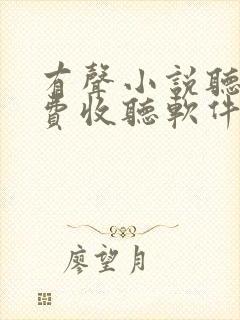 有聲小説聽
費收聽軟件
廖望月